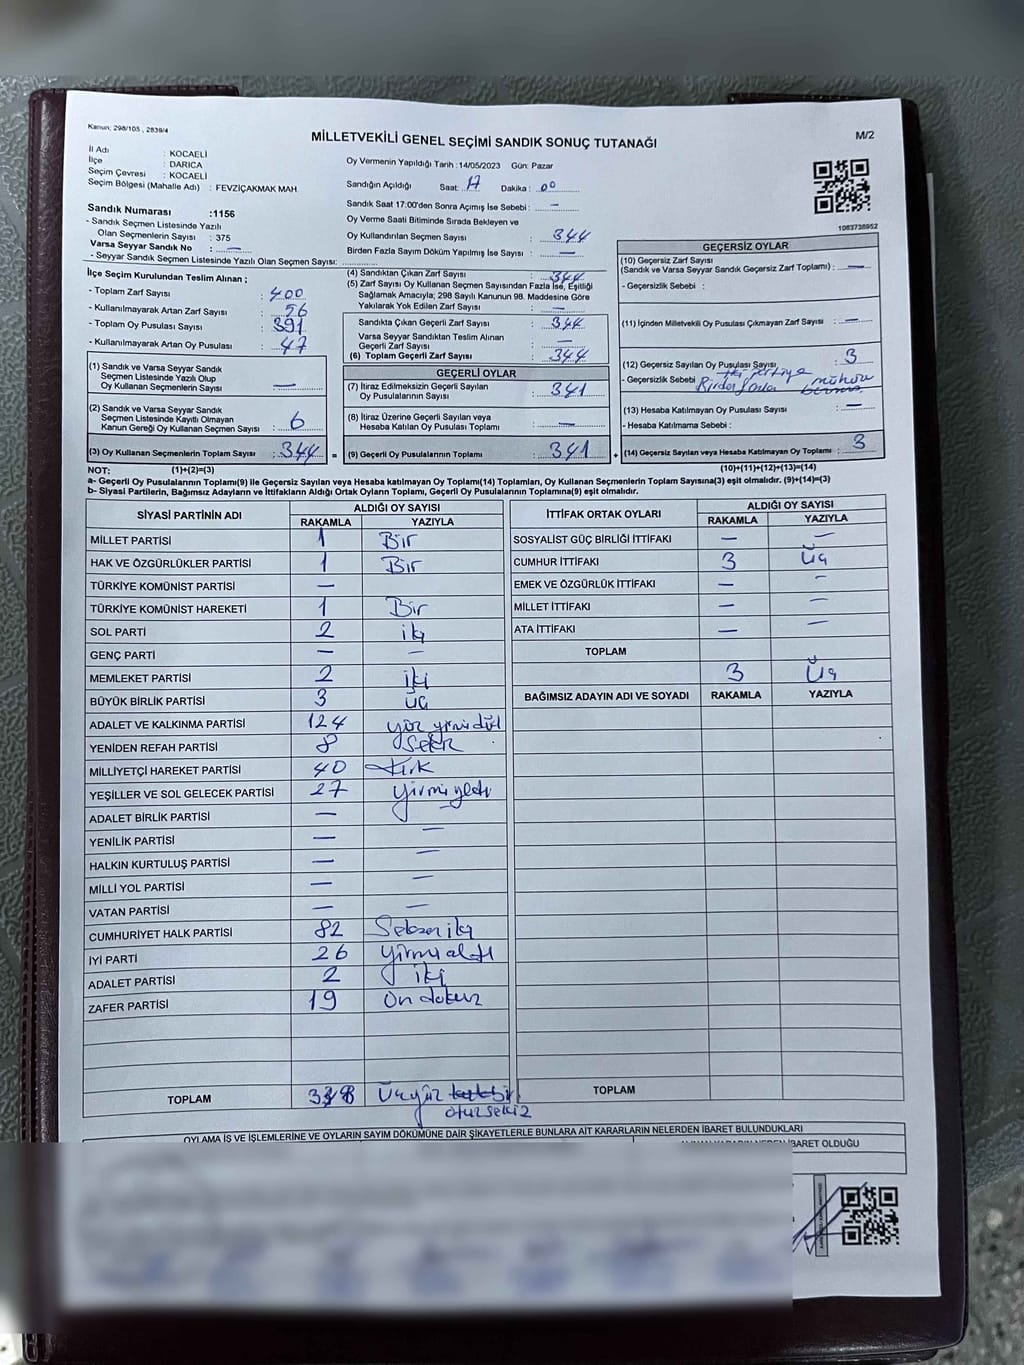 Kanun; 298/105 , 2839/4
MİLLETVEKİLİ GENEL SEÇİMİ SANDIK SONUÇ TUTANAĞI
M/2
İl Adı : KOCAELİ
İlçe : DARICA
Seçim Çevresi : KOCAELİ
Seçim Bölgesi (Mahalle Adı) : FEVZİÇAKMAK MAH.
Sandık Numarası :1156
- Sandık Seçmen Listesinde Yazılı
Olan Seçmenlerin Sayısı : 375
Varsa Seyyar Sandık No : —
- Seyyar Sandık Seçmen Listesinde Yazılı Olan Seçmen Sayısı:
İlçe Seçim Kurulundan Teslim Alınan ;
- Toplam Zarf Sayısı : 400
- Kullanılmayarak Artan Zarf Sayısı : 56
- Toplam Oy Pusulası Sayısı : 391
- Kullanılmayarak Artan Oy Pusulası : 47
(1) Sandık ve Varsa Seyyar Sandık
Seçmen Listesinde Yazılı Olup
Oy Kullanan Seçmenlerin Sayısı : —
(2) Sandık ve Varsa Seyyar Sandık
Seçmen Listesinde Kayıtlı Olmayan
Kanun Gereği Oy Kullanan Seçmen Sayısı : 6
(3) Oy Kullanan Seçmenlerin Toplam Sayısı : 344 =
Oy Vermenin Yapıldığı Tarih :14/05/2023 Gün: Pazar
Sandığın Açıldığı Saat: 17 Dakika : 00
Sandık Saat 17:00'den Sonra Açımış İse Sebebi : —
Oy Verme Saati Bitiminde Sırada Bekleyen ve
Oy Kullandırılan Seçmen Sayısı : 344
Birden Fazla Sayım Döküm Yapılmış İse Sayısı : —
(4) Sandıktan Çıkan Zarf Sayısı : 344
(5) Zarf Sayısı Oy Kullanan Seçmen Sayısından Fazla İse, Eşitliği
Sağlamak Amacıyla; 298 Sayılı Kanunun 98. Maddesine Göre
Yakılarak Yok Edilen Zarf Sayısı : —
Sandıkta Çıkan Geçerli Zarf Sayısı : 344
Varsa Seyyar Sandıktan Teslim Alınan
Geçerli Zarf Sayısı : —
(6) Toplam Geçerli Zarf Sayısı : 344
GEÇERLİ OYLAR
(7) İtiraz Edilmeksizin Geçerli Sayılan
Oy Pusulalarının Sayısı : 341
(8) İtiraz Üzerine Geçerli Sayılan veya
Hesaba Katılan Oy Pusulası Toplamı : —
(9) Geçerli Oy Pusulalarının Toplamı : 341 +
1083738952
GEÇERSİZ OYLAR
(10) Geçersiz Zarf Sayısı
(Sandık ve Varsa Seyyar Sandık Geçersiz Zarf Toplamı) : —
- Geçersizlik Sebebi :
(11) İçinden Milletvekili Oy Pusulası Çıkmayan Zarf Sayısı : —
(12) Geçersiz Sayılan Oy Pusulası Sayısı : 3
- Geçersizlik Sebebi : Birden fazla mühür
(13) Hesaba Katılmayan Oy Pusulası Sayısı : —
- Hesaba Katılmama Sebebi :
(14) Geçersiz Sayılan veya Hesaba Katılmayan Oy Toplamı : 3
NOT: (1)+(2)=(3) (10)+(11)+(12)+(13)=(14)
a- Geçerli Oy Pusulalarının Toplamı(9) ile Geçersiz Sayılan veya Hesaba Katılmayan Oy Toplamı(14) Toplamları, Oy Kullanan Seçmenlerin Toplam Sayısına(3) eşit olmalıdır. (9)+(14)=(3)
b- Siyasi Partilerin, Bağımsız Adayların ve İttifakların Aldığı Ortak Oyların Toplamı, Geçerli Oy Pusulalarının Toplamına(9) eşit olmalıdır.
SİYASİ PARTİNİN ADI ALDIĞI OY SAYISI
RAKAMLA YAZIYLA
MİLLET PARTİSİ 1 Bir
HAK VE ÖZGÜRLÜKLER PARTİSİ 1 Bir
TÜRKİYE KOMÜNİST PARTİSİ —
TÜRKİYE KOMÜNİST HAREKETİ 1 Bir
SOL PARTİ 2 iki
GENÇ PARTİ — —
MEMLEKET PARTİSİ 2 iki
BÜYÜK BİRLİK PARTİSİ 3 üç
ADALET VE KALKINMA PARTİSİ 124 yüz yirmi dört
YENİDEN REFAH PARTİSİ 8 Sekiz
MİLLİYETÇİ HAREKET PARTİSİ 40 kırk
YEŞİLLER VE SOL GELECEK PARTİSİ 27 yirmi yedi
ADALET BİRLİK PARTİSİ — —
YENİLİK PARTİSİ — —
HALKIN KURTULUŞ PARTİSİ — —
MİLLİ YOL PARTİSİ — —
VATAN PARTİSİ — —
CUMHURİYET HALK PARTİSİ 82 Seksen iki
İYİ PARTİ 26 yirmi altı
ADALET PARTİSİ 2 iki
ZAFER PARTİSİ 19 On dokuz
TOPLAM 338 Üçyüz
otuz sekiz
İTTİFAK ORTAK OYLARI ALDIĞI OY SAYISI
RAKAMLA YAZIYLA
SOSYALİST GÜÇ BİRLİĞİ İTTİFAKI — —
CUMHUR İTTİFAKI 3 Üç
EMEK VE ÖZGÜRLÜK İTTİFAKI — —
MİLLET İTTİFAKI — —
ATA İTTİFAKI — —
TOPLAM
3 Üç
BAĞIMSIZ ADAYIN ADI VE SOYADI RAKAMLA YAZIYLA
TOPLAM
OYLAMA İŞ VE İŞLEMLERİNE VE OYLARIN SAYIM DÖKÜMÜNE DAİR ŞİKAYETLERLE BUNLARA AİT KARARLARIN NELERDEN İBARET BULUNDUKLARI
İBARET OLDUĞU